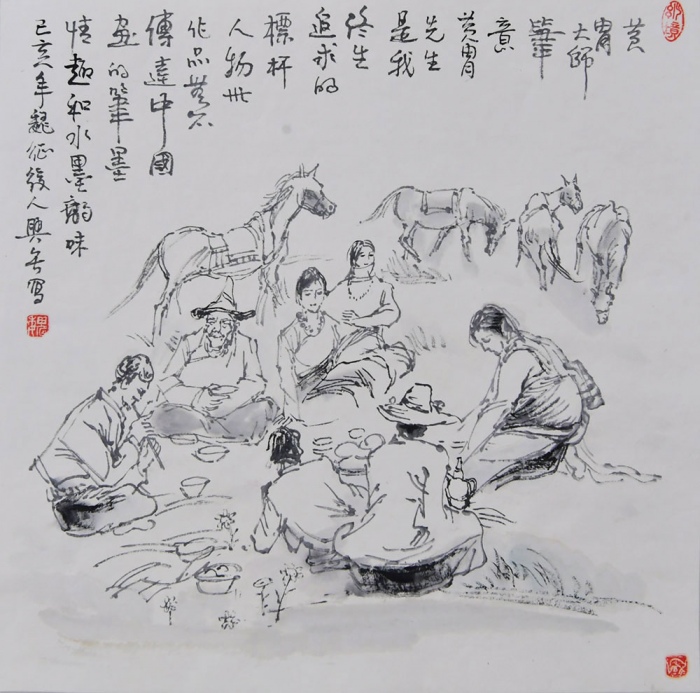 黄
胄大師
筆
意
黄胄
先生
是我
终生
追求的
標杆
人物
作品無不
傳達中國
画的筆墨
情趣和水墨韵味
己亥年魏征後人興写